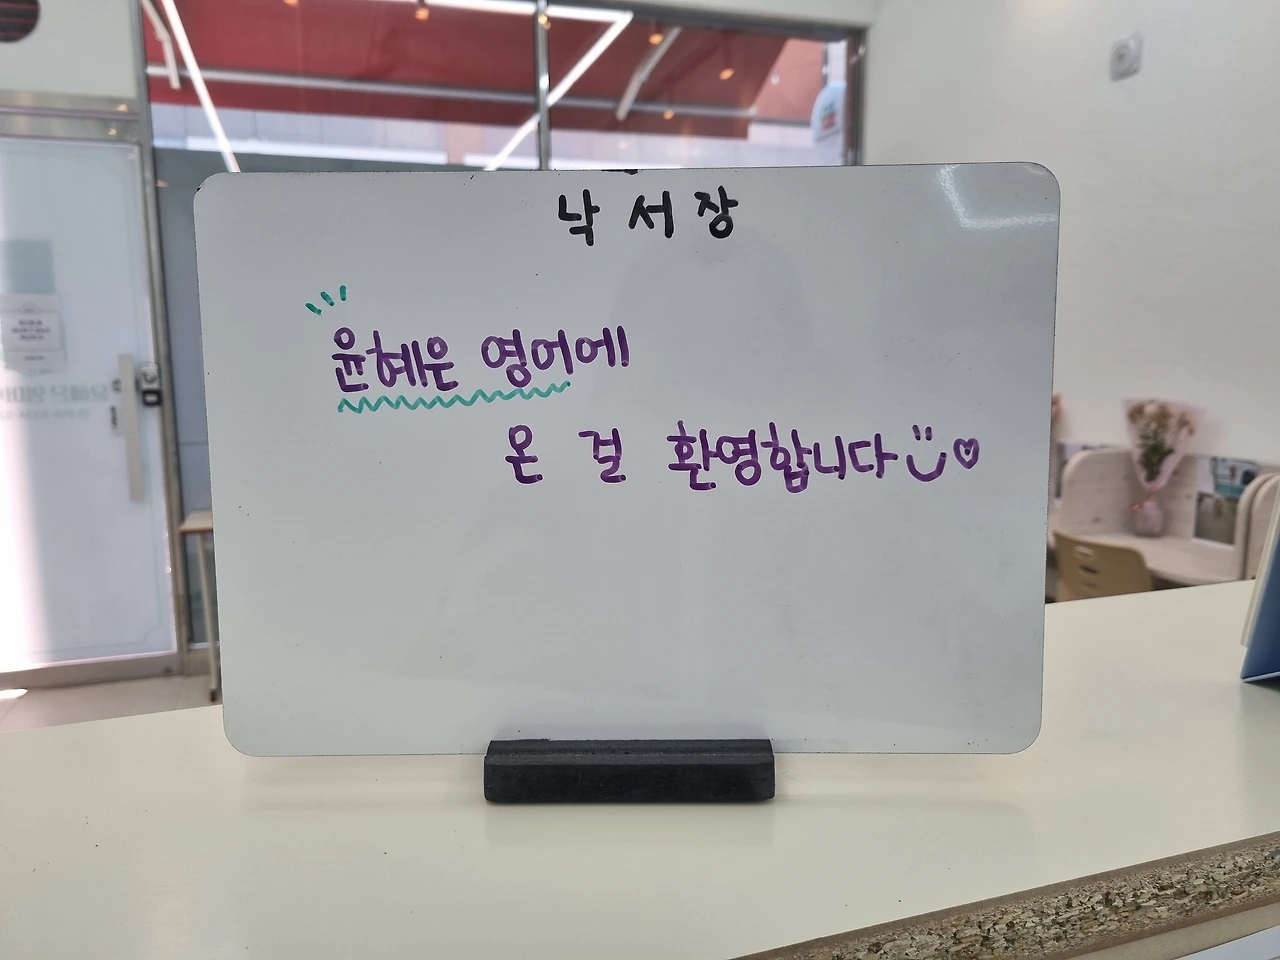 낙서장
윤혜은 영어에
온 걸 환영합니다